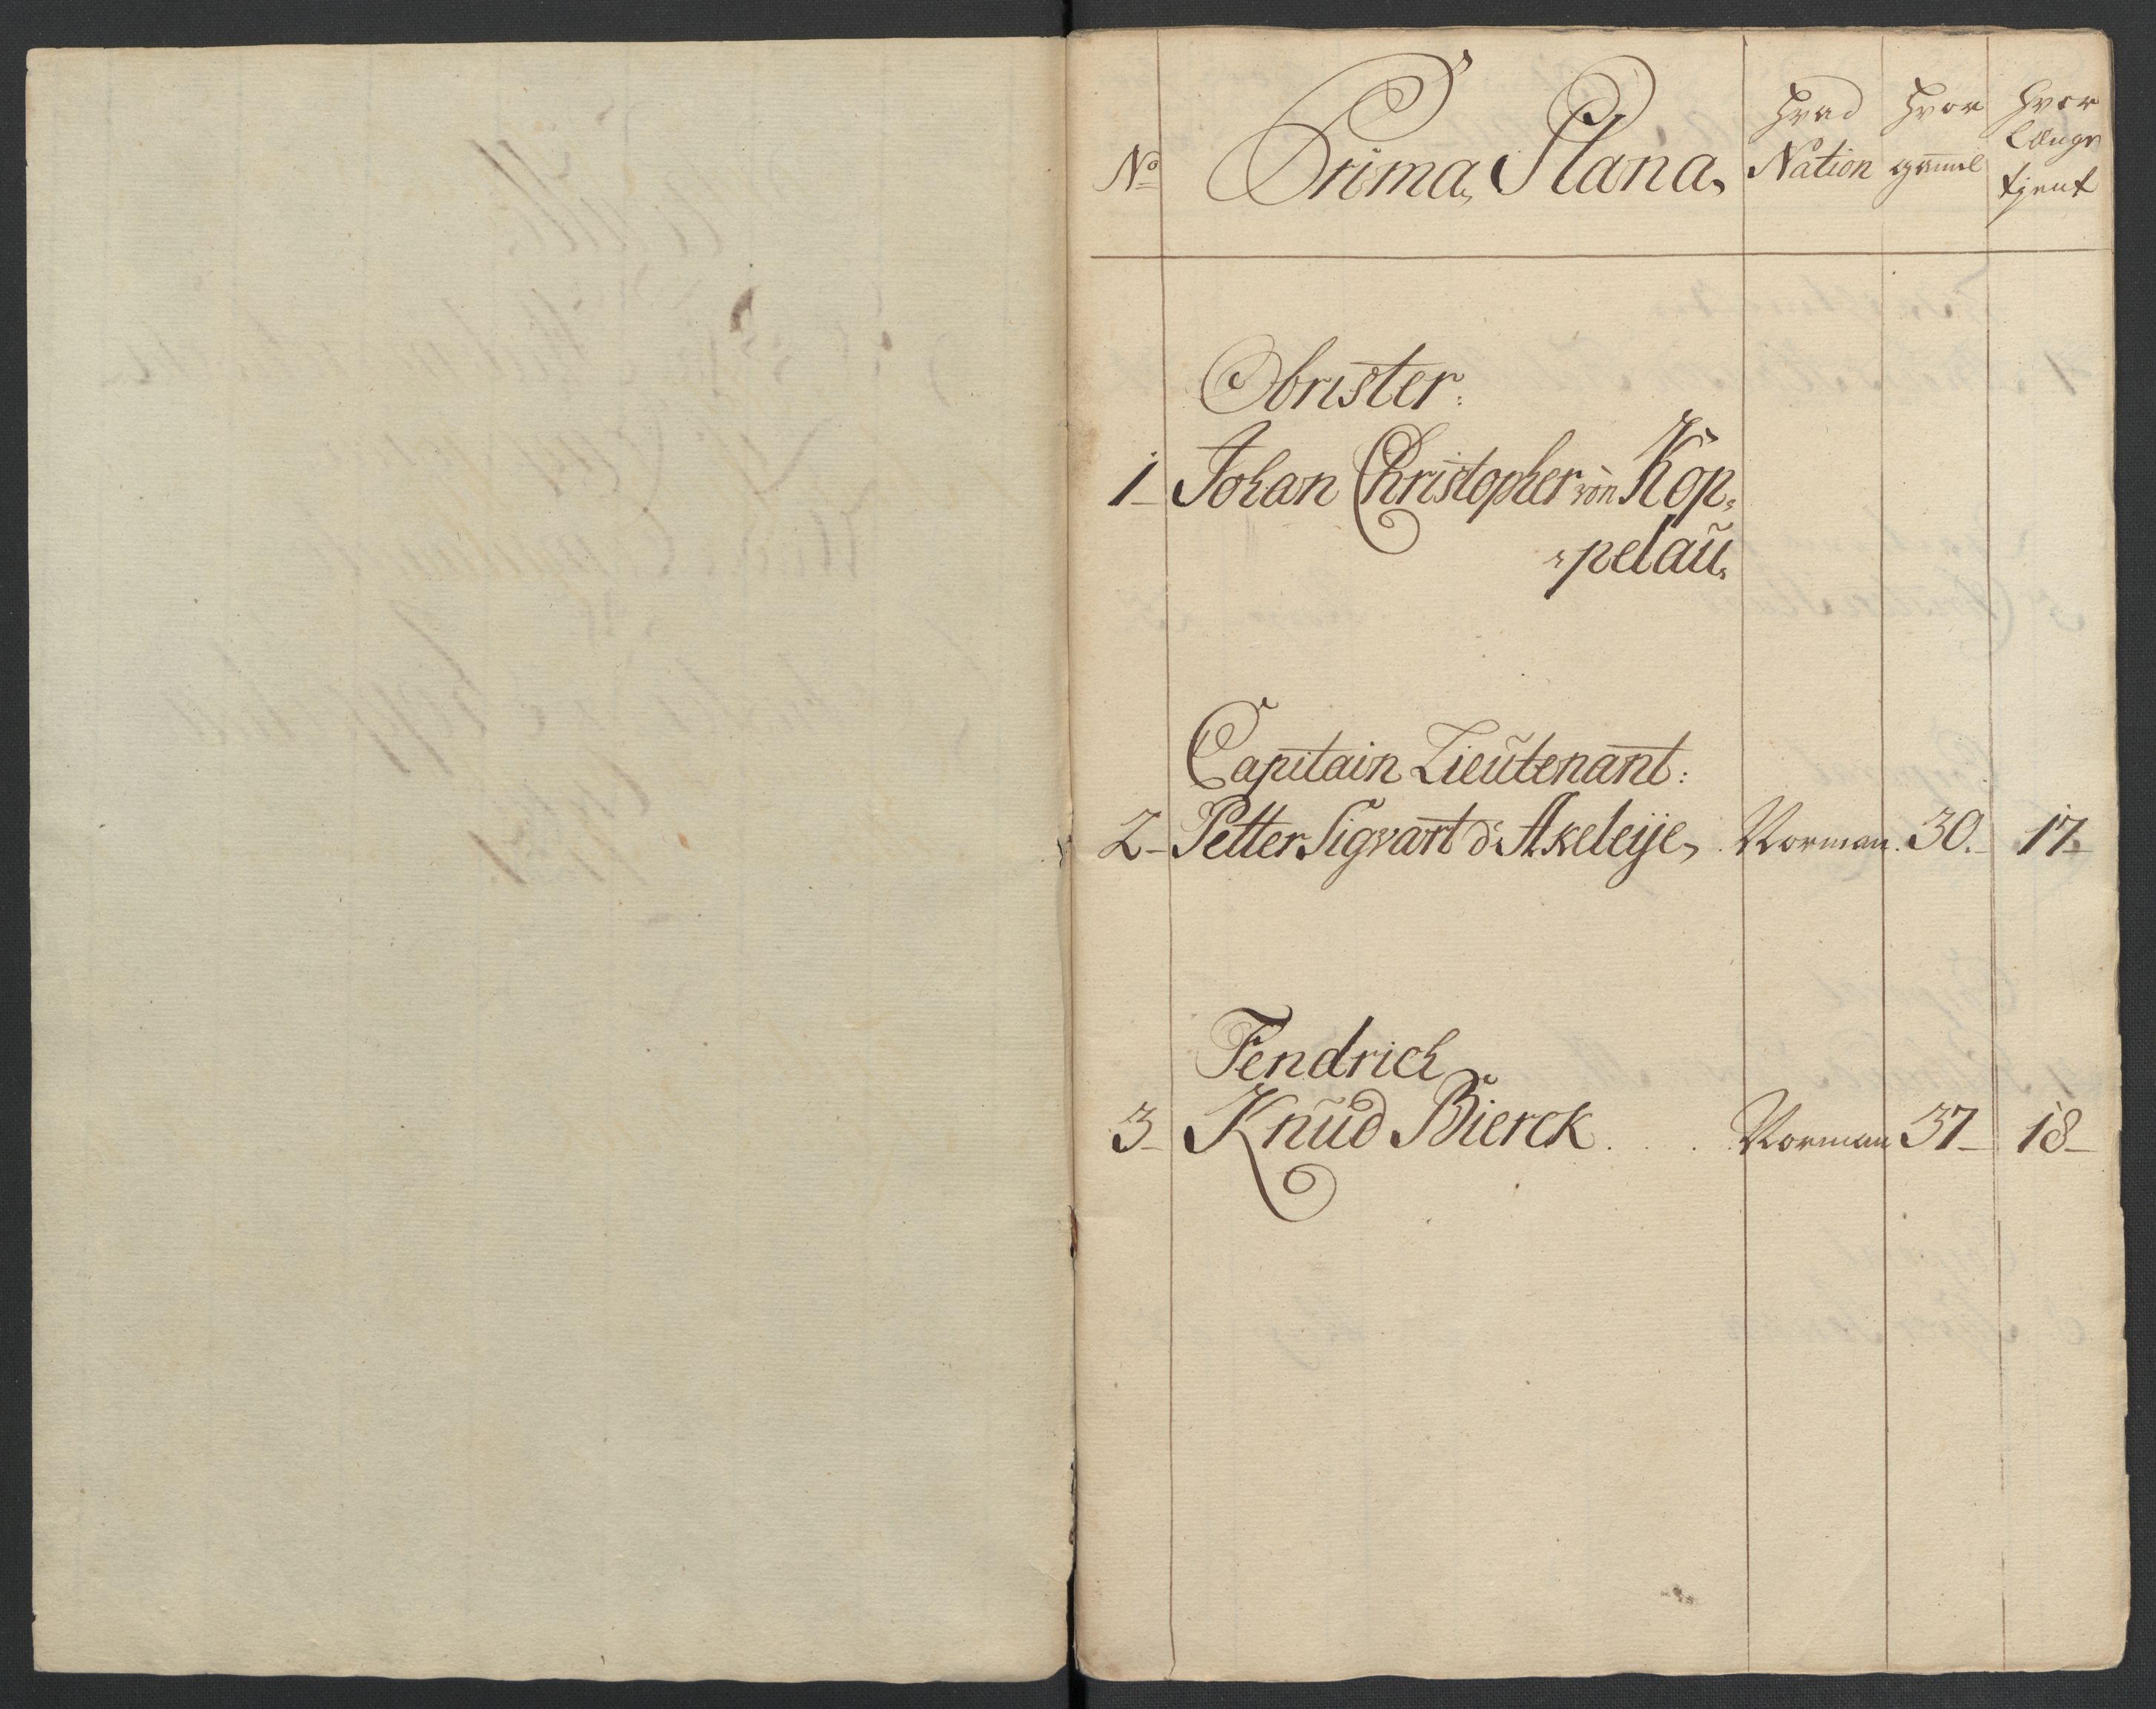 No Prima Plana, Hvad Nation Hvor gam̅el Hvor Længe tient
Obrister:
1 Johan Christopher von Kop=
=pelaŭ,
Capitain Lieŭtenant:
2 Petter Sigvart d'Akeleije, Norman 30. 17
Fendrich
3 Knŭd Bierck . . . Norman 37 18